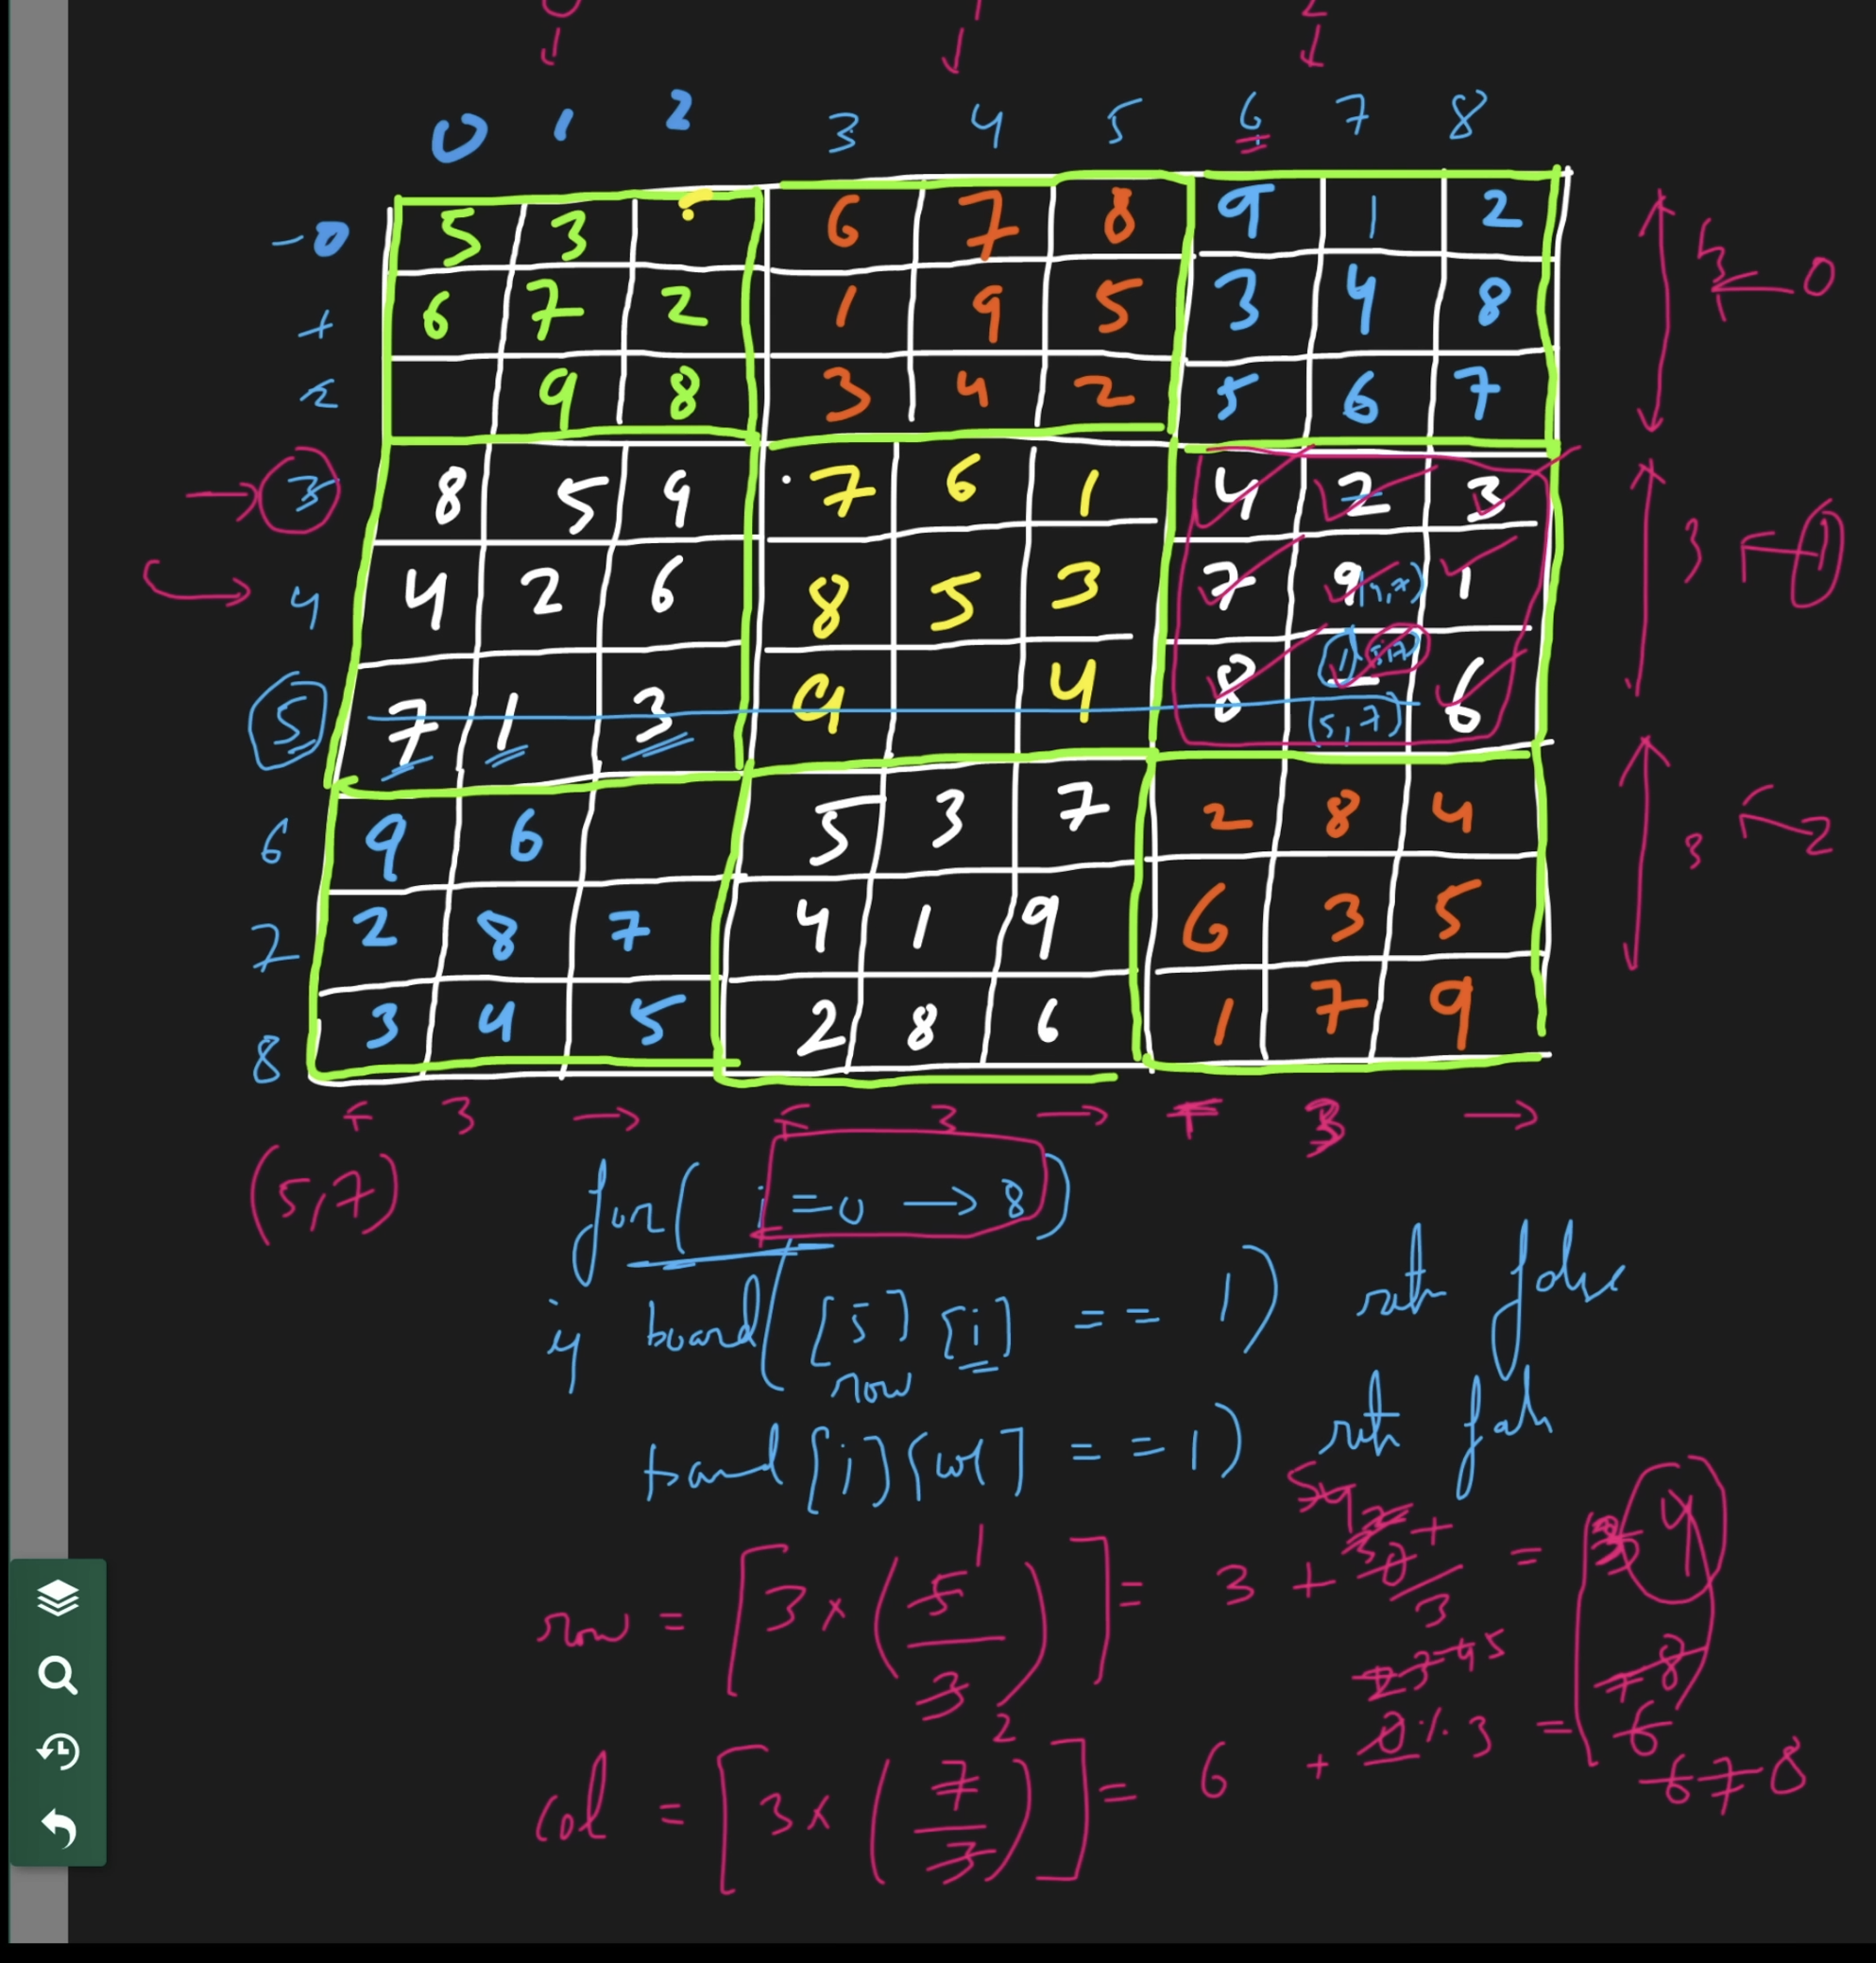 0 1 2
0 1 2 3 4 5 6 7 8
0 5 3 ? 6 7 8 9 1 2
6 7 2 1 9 5 3 4 8
← 0
2 9 8 3 4 2 5 6 7
→ 3 8 5 9 7 6 1 4 2 3
4 4 2 6 8 5 3 7 9 (4,7) 1
3 ← 1
5 7 1 3 9 4 8 1 (5,7) 6
(5,7)
6 9 6 5 3 7 2 8 4
3 ← 2
7 2 8 7 4 1 9 6 3 5
8 3 4 5 2 8 6 1 7 9
← 3 → ← 3 → ← 3 →
(5,7)
for( i=0 → 8)
if board([5][i] == 1) retn false
row
board[i][col] == 1) retn fals
row = [3 x (5/3)] = 3 +
1
2
col = [3 x (7/3)] = 6 + 0 % 3 =
6 7 8